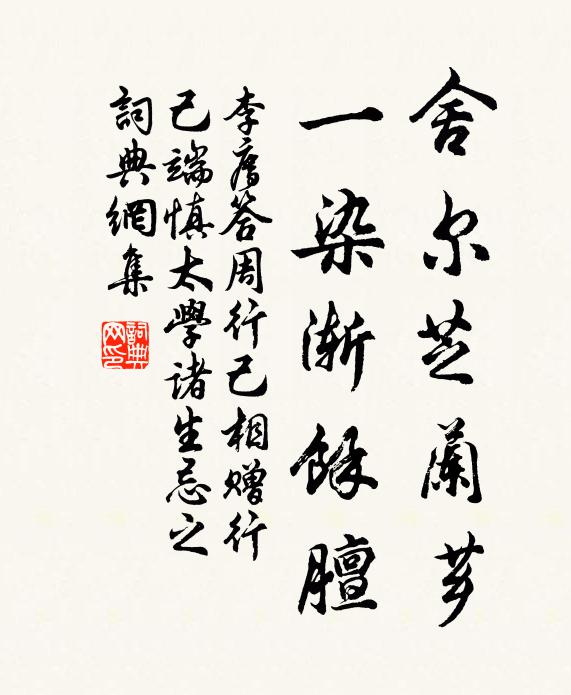 舍尔芝蘭芗
一染漸餘膻
李廌答周行己相贈行
己端慎太學諸生忌之
詞典網集
詞典网印